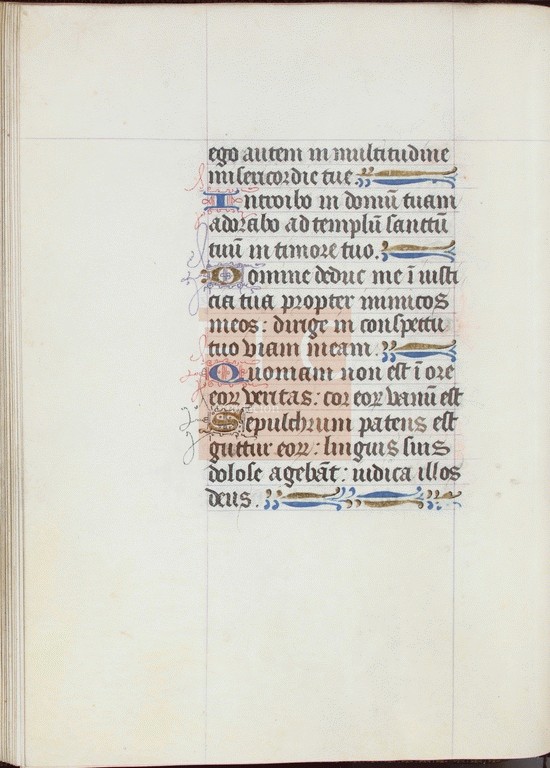 ego autem in multitudine
misericordie tue
Introibo in domū tuam
adorabo ad templū sanctū
tuū in timore tuo.
Domine deduc me ī iusti
cia tua propter inimicos
meos: dirige in conspectu
tuo viam meam.
Quoniam non est ī ore
eoꝝ veritas: cor eoꝝ vanū est
Sepulchrum patens est
guttur eoꝝ: linguis suis
dolose agebāt: iudica illos
deus.